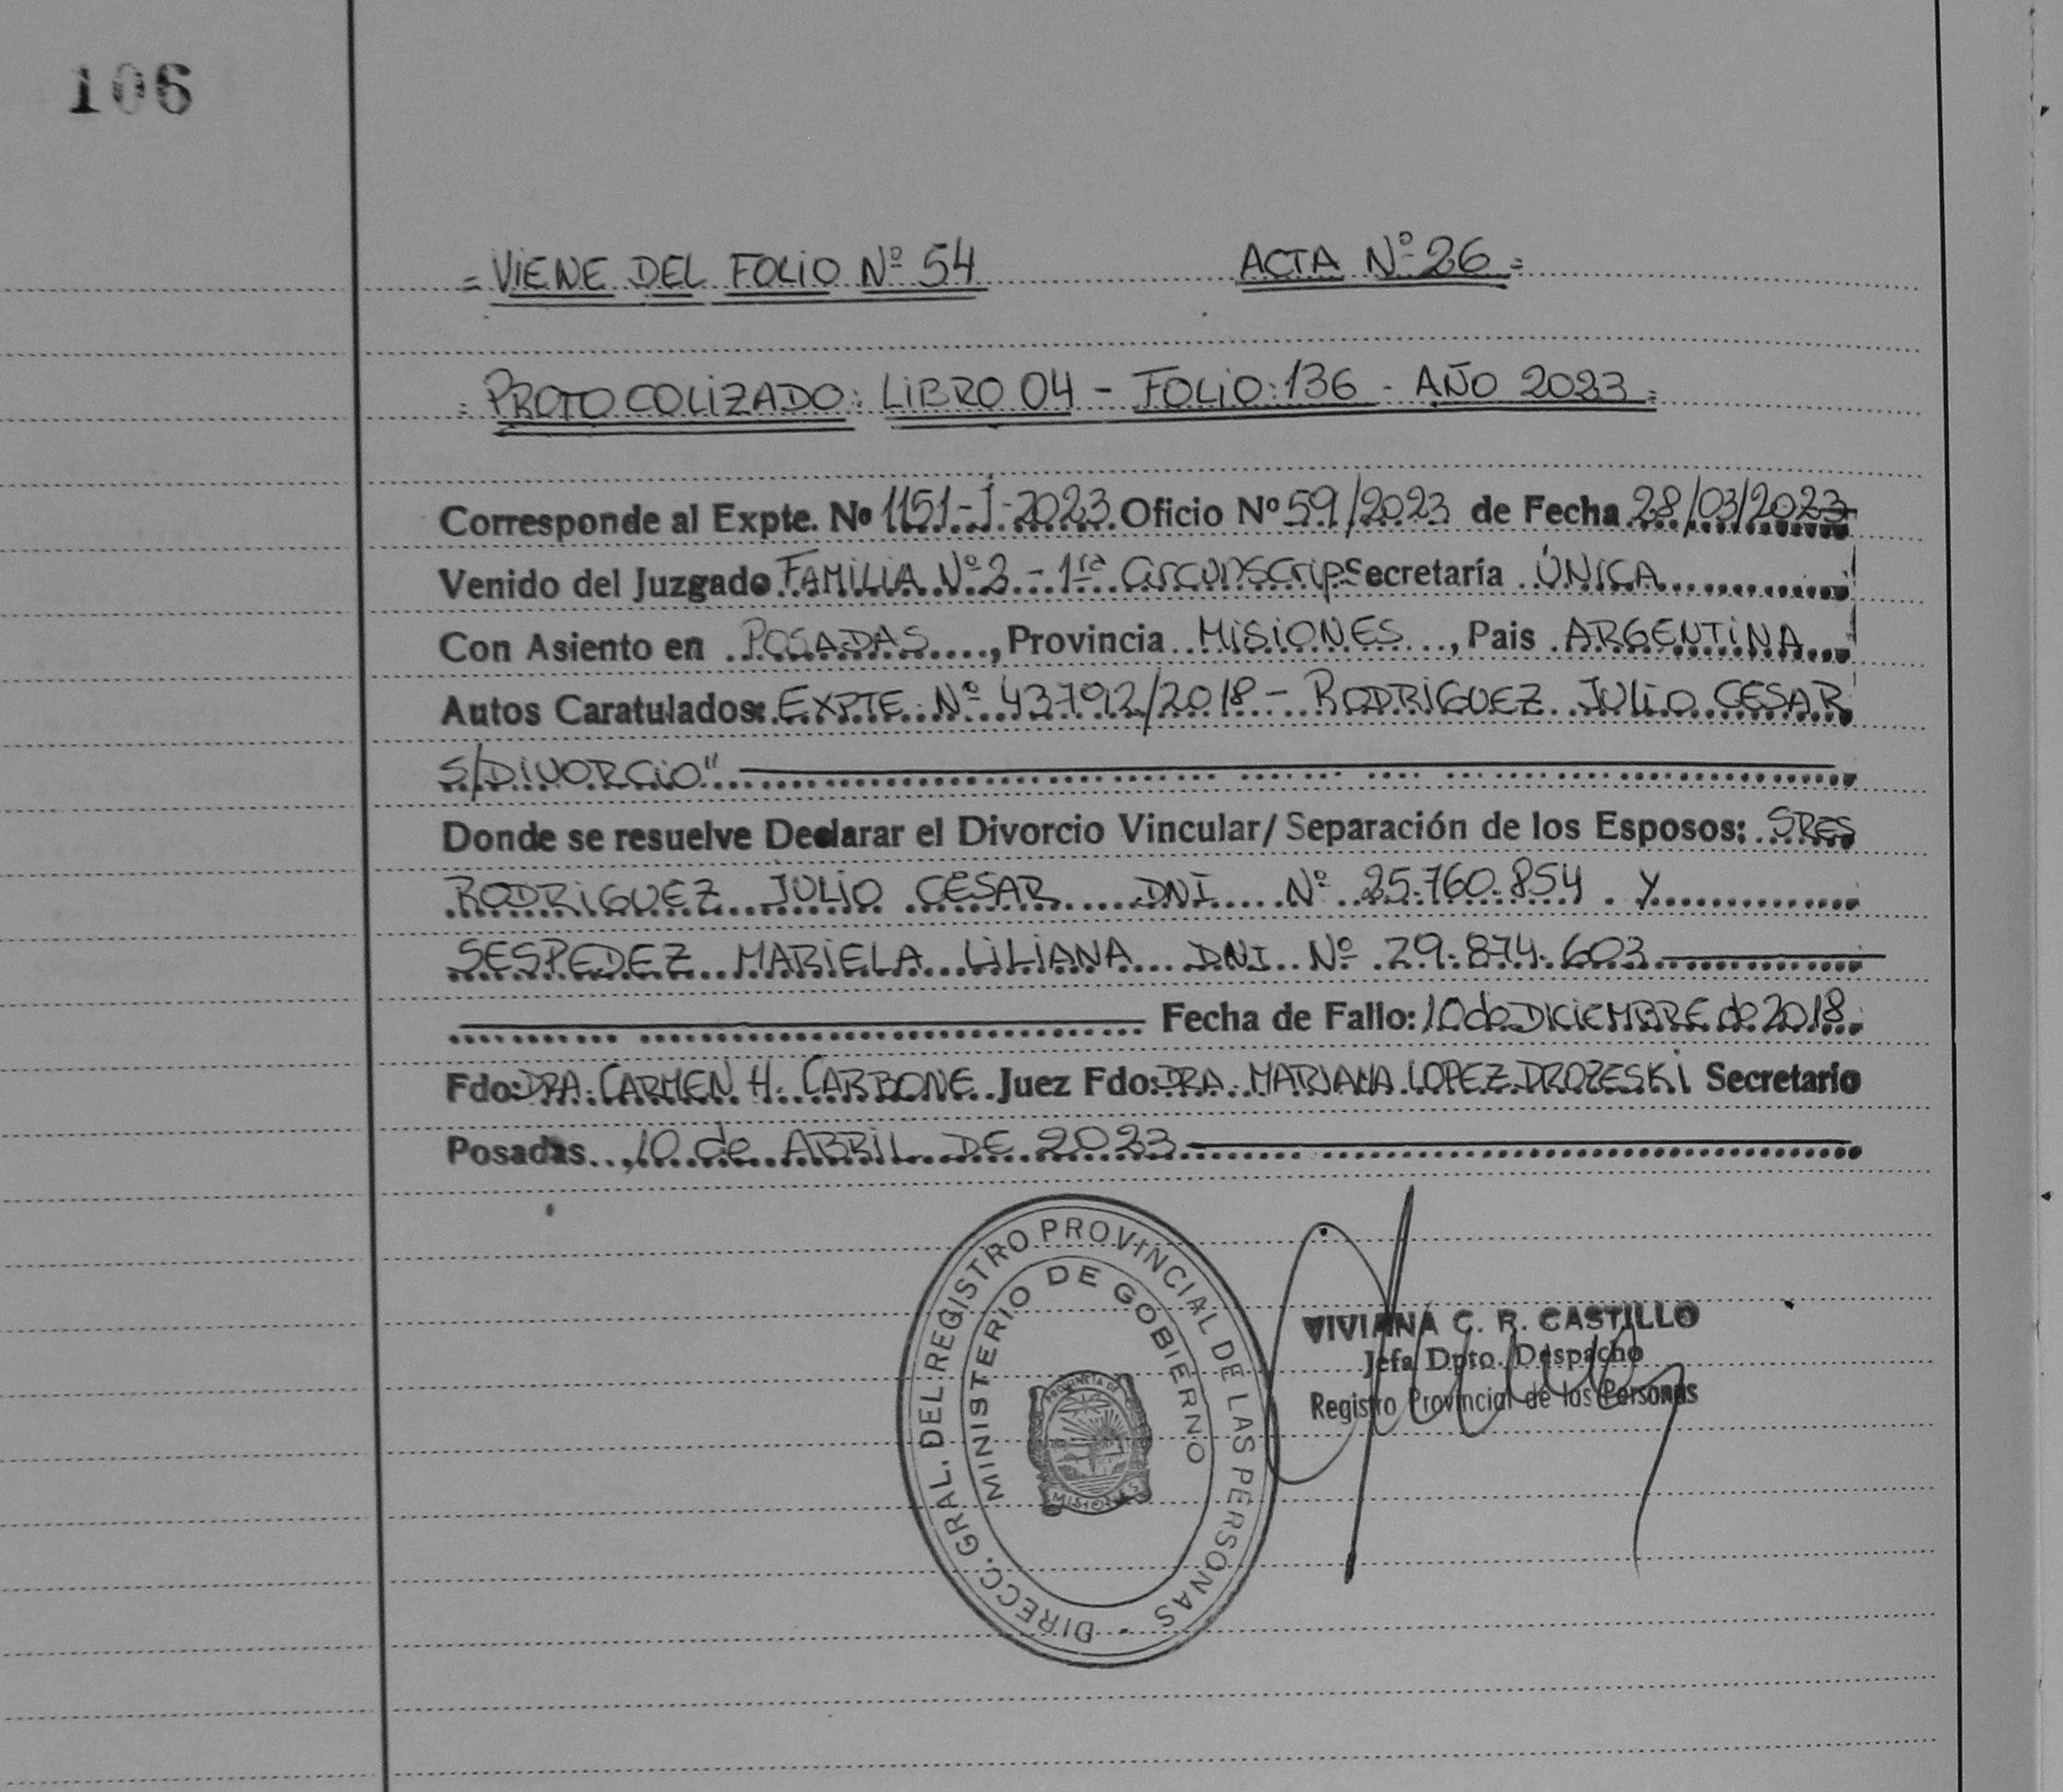 106
= VIENE DEL FOLIO Nº 54 ACTA Nº 26 =
= PROTOCOLIZADO: LIBRO 04 - FOLIO: 136 - AÑO 2023 =
Corresponde al Expte. Nº 1151-J-2023 Oficio Nº 59/2023 de Fecha 28/03/2023
Venido del Juzgado FAMILIA Nº 2 - 1ra Circunscrip Secretaría ÚNICA
Con Asiento en POSADAS, Provincia MISIONES, Pais ARGENTINA
Autos Caratulados: EXPTE Nº 43792/2018 - RODRIGUEZ JULIO CESAR
S/DIVORCIO"
Donde se resuelve Declarar el Divorcio Vincular/ Separación de los Esposos: SRES
RODRIGUEZ JULIO CESAR DNI Nº 25.760.854 Y
SESPEDEZ MARIELA LILIANA DNI Nº 29.874.603
Fecha de Fallo: 10 de DICIEMBRE de 2018
Fdo: DRA. CARMEN H. CARBONE Juez Fdo: DRA. MARIANA LOPEZ DROZESKI Secretario
Posadas, 10 de ABRIL DE 2023
DIRECC. GRAL. DEL REGISTRO PROVINCIAL DE LAS PERSONAS -
MINISTERIO DE GOBIERNO
PROVINCIA DE
MISIONES
VIVIANA C. R. CASTILLO
Jefa Dpto. Despacho
Registro Provincial de las Personas